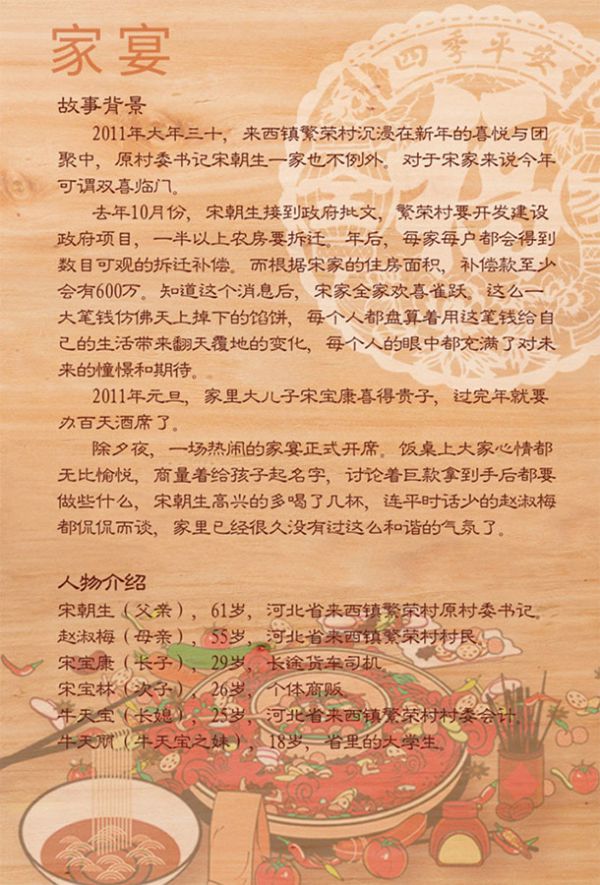 家宴
四季平安
故事背景
2011年大年三十，来西镇繁荣村沉浸在新年的喜悦与团
聚中，原村委书记宋朝生一家也不例外。对于宋家来说今年
可谓双喜临门。
去年10月份，宋朝生接到政府批文，繁荣村要开发建设
政府项目，一半以上农房要拆迁。年后，每家每户都会得到
数目可观的拆迁补偿。而根据宋家的住房面积，补偿款至少
会有600万。知道这个消息后，宋家全家欢喜雀跃。这么一
大笔钱仿佛天上掉下的馅饼，每个人都盘算着用这笔钱给自
己的生活带来翻天覆地的变化，每个人的眼中都充满了对未
来的憧憬和期待。
2011年元旦，家里大儿子宋宝康喜得贵子，过完年就要
办百天酒席了。
除夕夜，一场热闹的家宴正式开席。饭桌上大家心情都
无比愉悦，商量着给孩子起名字，讨论着巨款拿到手后都要
做些什么，宋朝生高兴的多喝了几杯，连平时话少的赵淑梅
都侃侃而谈，家里已经很久没有过这么和谐的气氛了。
人物介绍
宋朝生（父亲），61岁，河北省来西镇繁荣村原村委书记。
赵淑梅（母亲），55岁，河北省来西镇繁荣村村民。
宋宝康（长子），29岁，长途货车司机。
宋宝林（次子），26岁，个体商贩。
牛天宝（长媳），25岁，河北省来西镇繁荣村村委会计。
牛天丽（牛天宝之妹），18岁，省里的大学生。